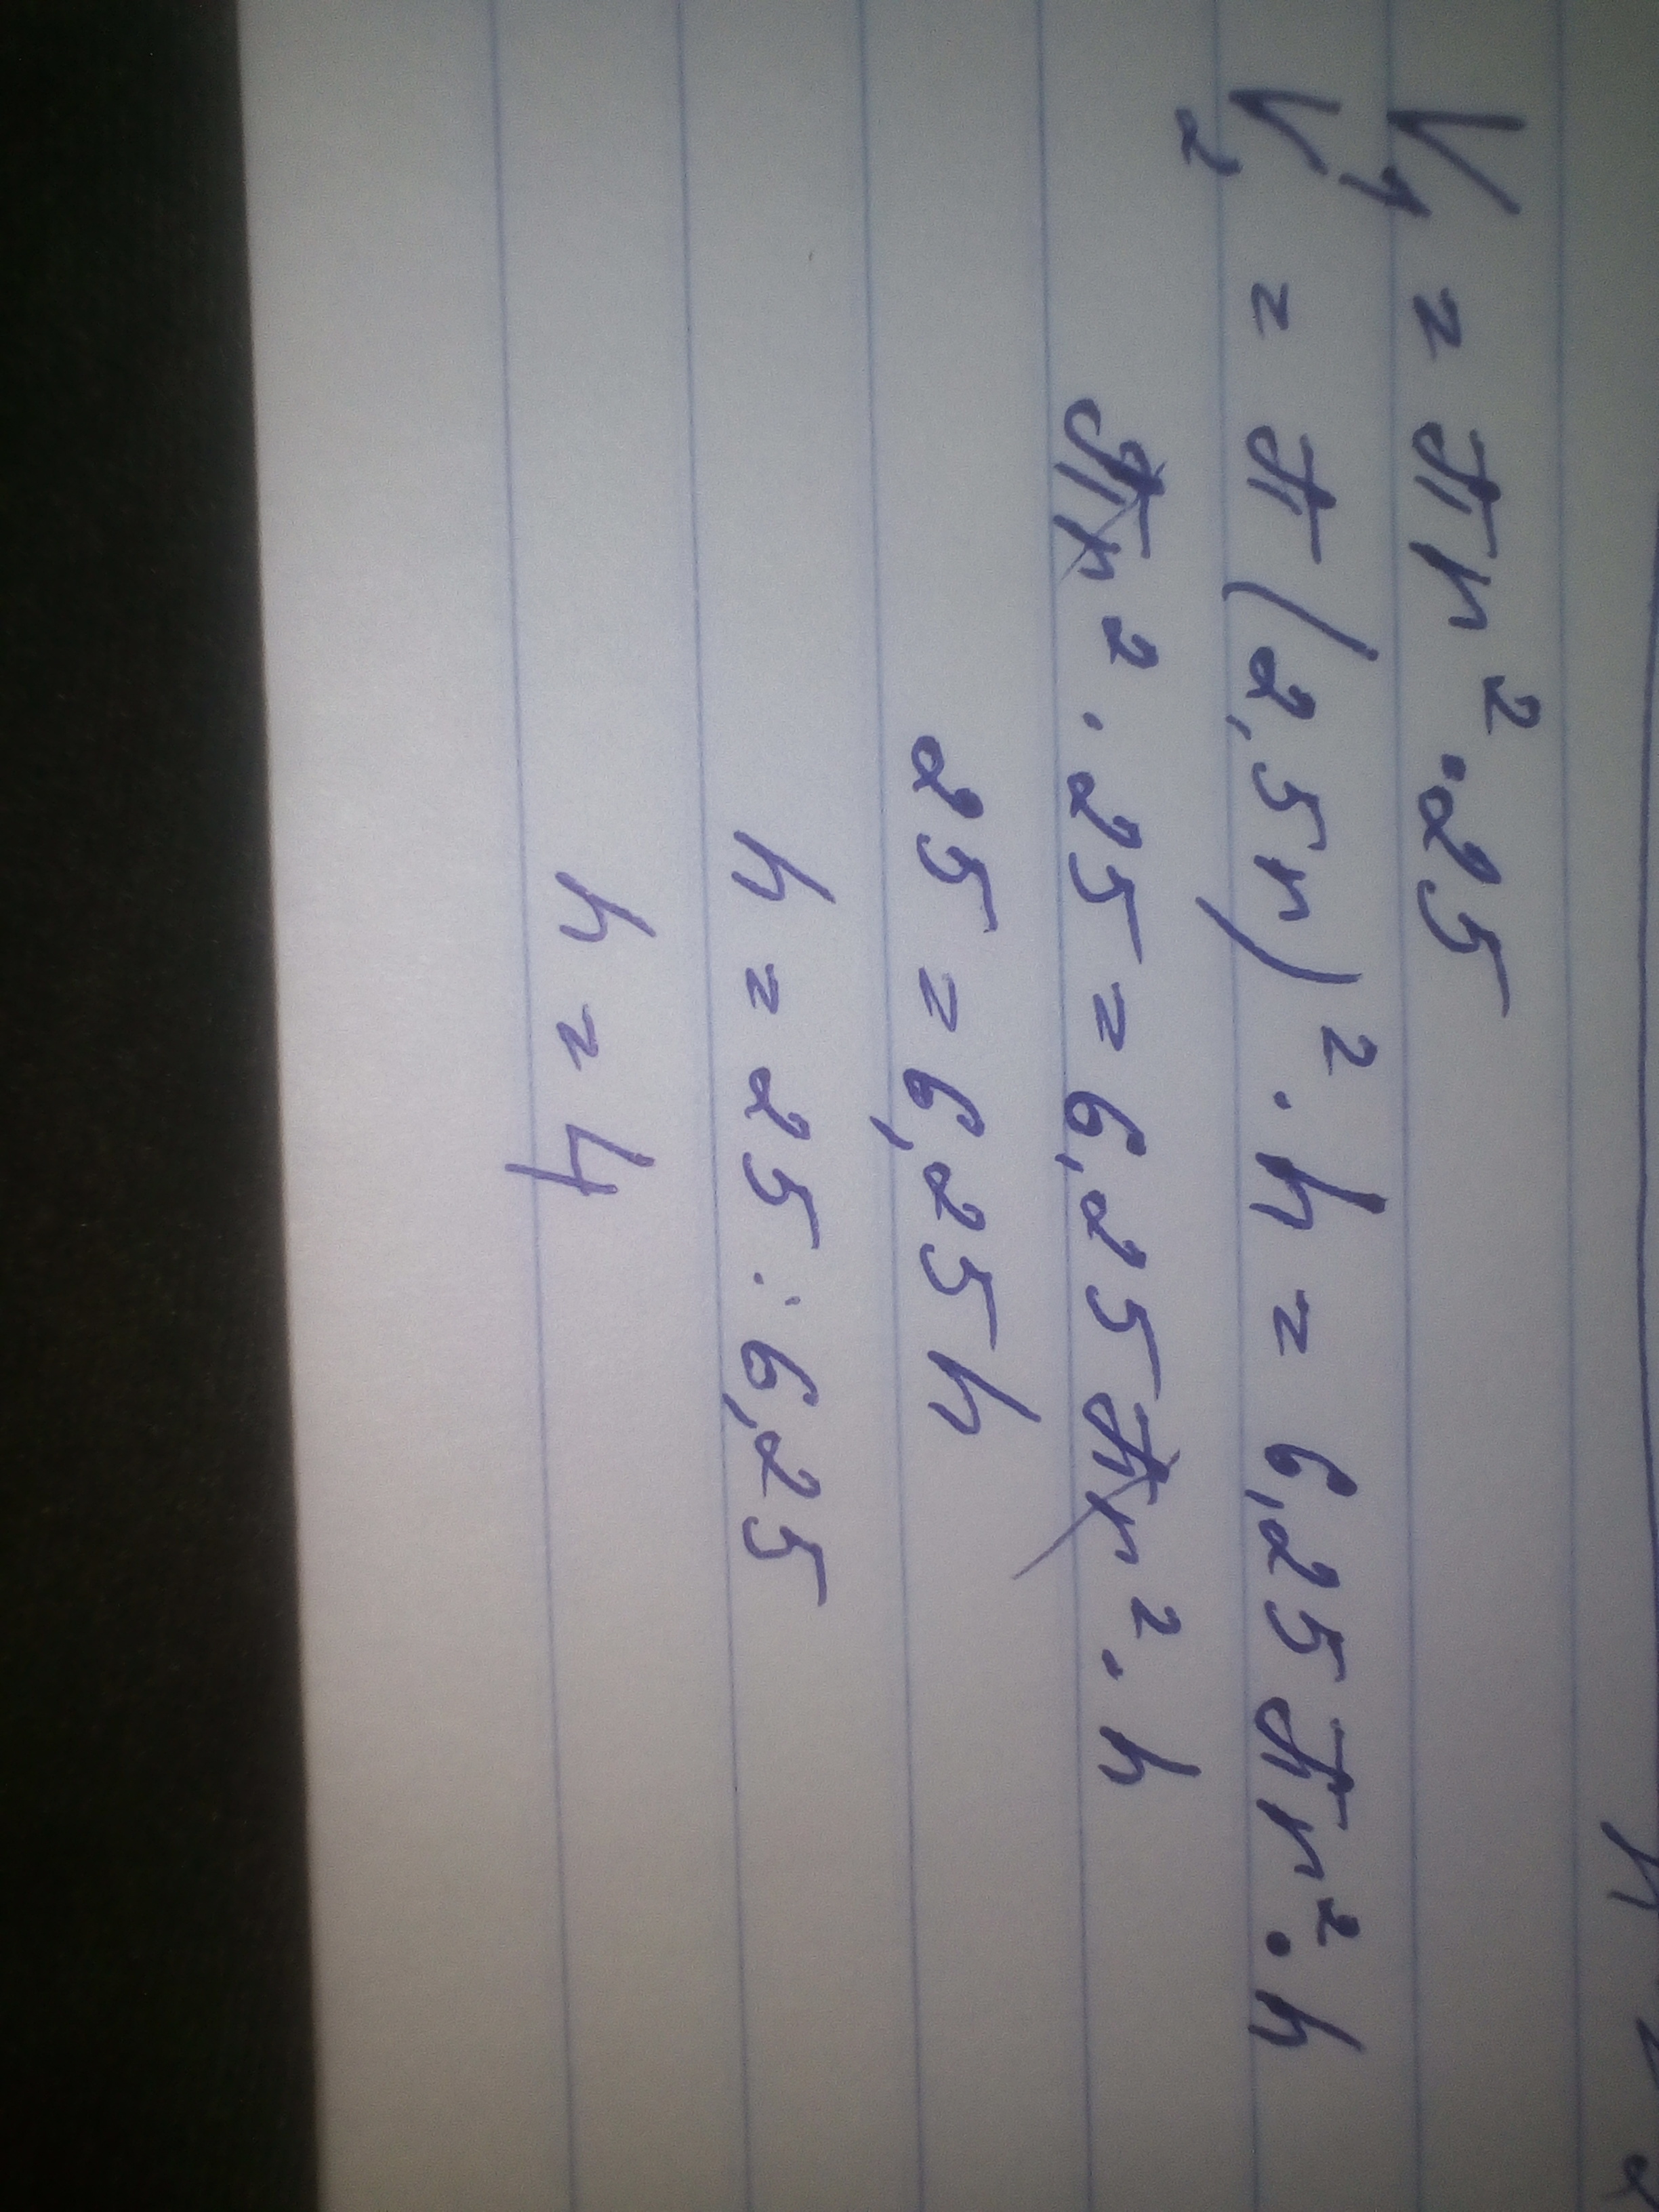 V₁ = πr² · 25
V₂ = π(2,5r)² · h = 6,25πr² · h
πr² · 25 = 6,25πr² · h
25 = 6,25h
h = 25 : 6,25
h = 4